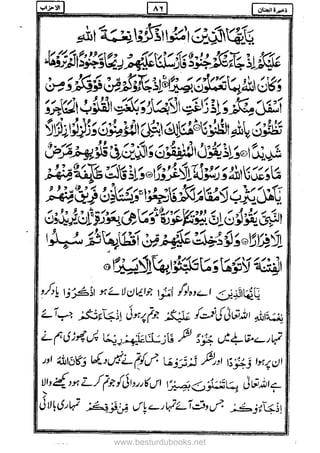 ذخیرۃ الجنان ٨٢ الاحزاب
يٰٓاَيُّهَا الَّذِيْنَ اٰمَنُوا اذْكُرُوْا نِعْمَةَ اللّٰهِ
عَلَيْكُمْ اِذْ جَآءَتْكُمْ جُنُوْدٌ فَاَرْسَلْنَا عَلَيْهِمْ رِيْحًا وَّجُنُوْدًا لَّمْ تَرَوْهَا ؕ
وَكَانَ اللّٰهُ بِمَا تَعْمَلُوْنَ بَصِيْرًا ۚ اِذْ جَآءُوْكُمْ مِّنْ فَوْقِكُمْ وَمِنْ
اَسْفَلَ مِنْكُمْ وَاِذْ زَاغَتِ الْاَبْصَارُ وَبَلَغَتِ الْقُلُوْبُ الْحَنَاجِرَ وَ
تَظُنُّوْنَ بِاللّٰهِ الظُّنُوْنَا ؕ هُنَالِكَ ابْتُلِيَ الْمُؤْمِنُوْنَ وَزُلْزِلُوْا زِلْزَالًا
شَدِيْدًا وَاِذْ يَقُوْلُ الْمُنٰفِقُوْنَ وَالَّذِيْنَ فِيْ قُلُوْبِهِمْ مَّرَضٌ
مَّا وَعَدَنَا اللّٰهُ وَرَسُوْلُهٗٓ اِلَّا غُرُوْرًا وَاِذْ قَالَتْ طَّآئِفَةٌ مِّنْهُمْ
يٰٓاَهْلَ يَثْرِبَ لَا مُقَامَ لَكُمْ فَارْجِعُوْا ۚ وَيَسْتَاْذِنُ فَرِيْقٌ مِّنْهُمُ
النَّبِيَّ يَقُوْلُوْنَ اِنَّ بُيُوْتَنَا عَوْرَةٌ ۛ وَمَا هِيَ بِعَوْرَةٍ ۛ اِنْ يُّرِيْدُوْنَ
اِلَّا فِرَارًا وَلَوْ دُخِلَتْ عَلَيْهِمْ مِّنْ اَقْطَارِهَا ثُمَّ سُئِلُوا
الْفِتْنَةَ لَاٰتَوْهَا وَمَا تَلَبَّثُوْا بِهَآ اِلَّا يَسِيْرًا
يٰٓاَيُّهَا الَّذِيْنَ اے وہ لوگو اٰمَنُوا جو ایمان لائے ہو اذْكُرُوْا یاد کرو
نِعْمَةَ اللّٰهِ اللہ تعالیٰ کی نعمت کو عَلَيْكُمْ جو تم پر ہوئی اِذْ جَآءَتْكُمْ جب آئے
تمہارے مقابلے میں جُنُوْدٌ لشکر فَاَرْسَلْنَا عَلَيْهِمْ رِيْحًا پس چھوڑی ہم نے
ان پر ہوا وَّجُنُوْدًا اور لشکر لَّمْ تَرَوْهَا جس کو تم نے نہیں دیکھا وَكَانَ اللّٰهُ اور
ہے اللہ تعالیٰ بِمَا تَعْمَلُوْنَ بَصِيْرًا اس کارروائی کو جو تم کرتے ہو دیکھنے والا
اِذْ جَآءُوْكُمْ جس وقت آئے تمہارے پاس مِّنْ فَوْقِكُمْ تمہاری بالائی
www.besturdubooks.net